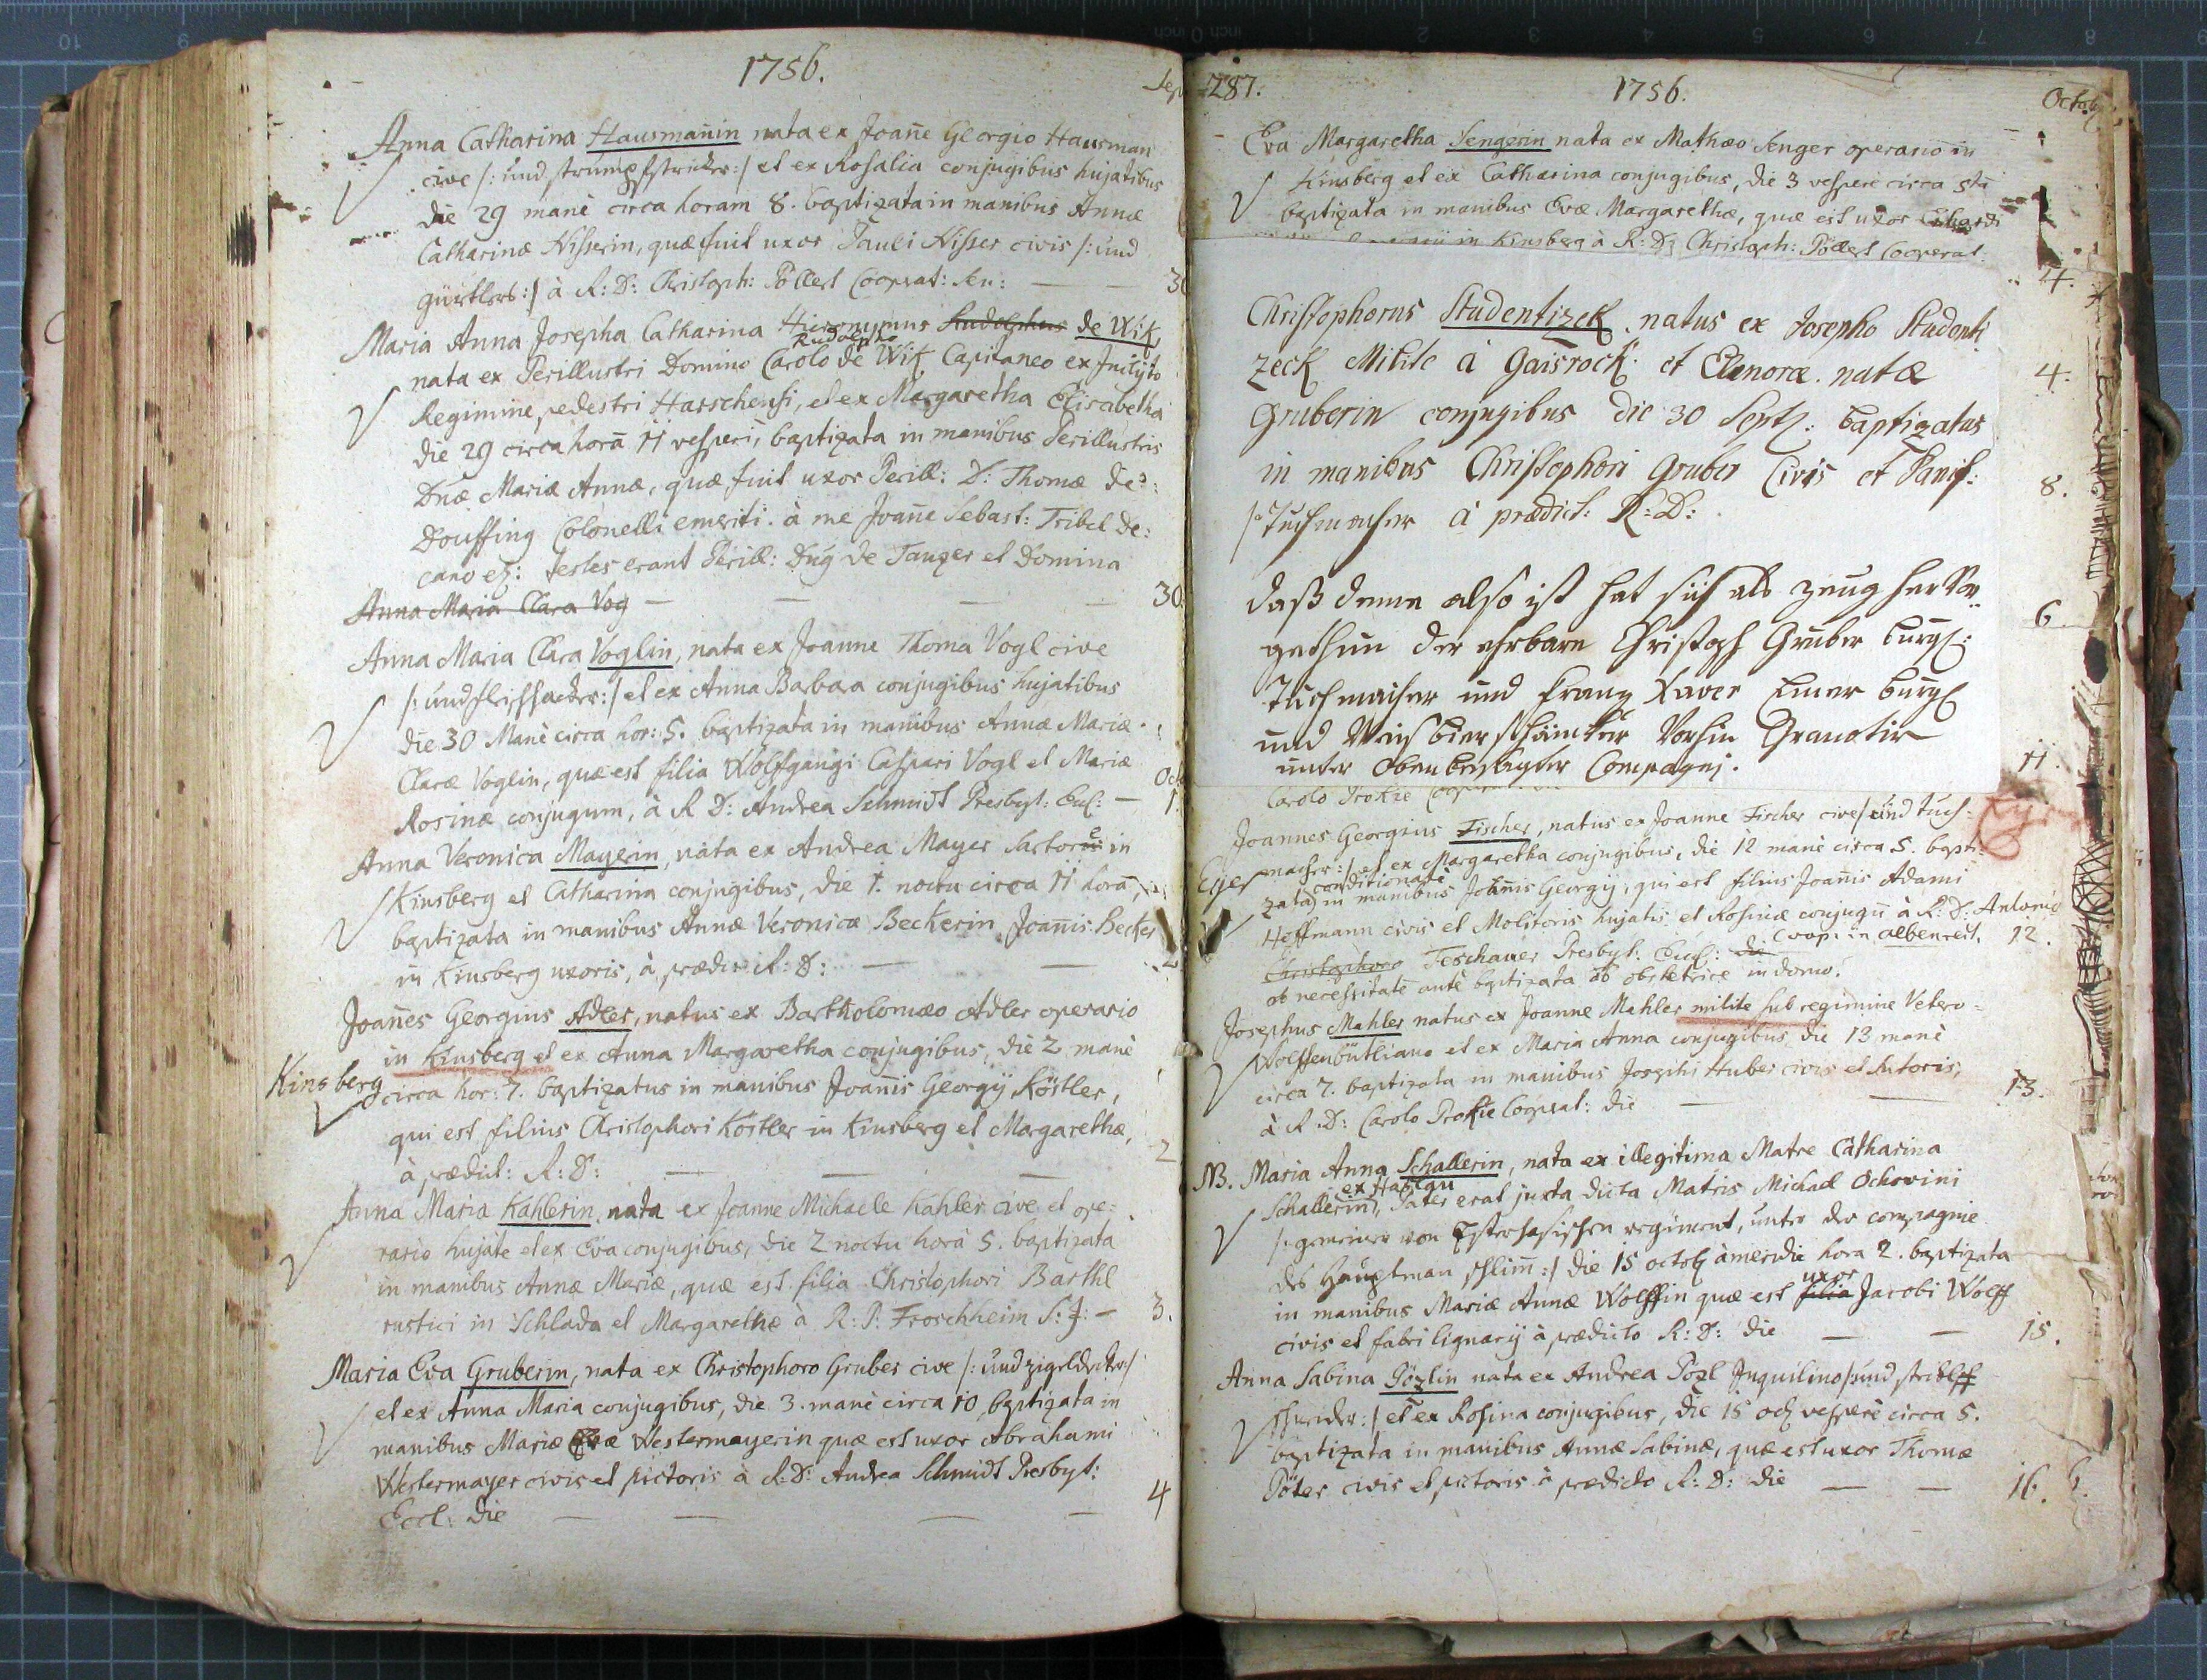 1756.
Sep
Anna Catharina Hausmañin nata ex Joañe Georgio Hausman
cive /: und strümpfstricker:/ et ex Rosalia conjugibus hujatibus
die 29 manè circa horam 8. baptizata in manibus Annæ
Catharinæ Nisserin, quæ fuit uxor Pauli Nisser civis /: und
gürtlers:/ à R: D: Christoph: Pöllert Cooprat: Sen: — — 30
Maria Anna Josepha Catharina Hieronymus Rudolphus de Wik
Rudolpho
nata ex Perillustri Domino Carolo de Wik Capitaneo ex Inclyto
Regimine pedestri Harschensi, et ex Margaretha Elisabetha
die 29 circa horã 11 vesperi, baptizata in manibus Perillustris
Dnæ Mariæ Annæ, quæ fuit uxor Perill: D: Thomæ de
Douffing Colonelli emeriti. à me Joañe Sebast: Tribel De:
cano etz: testes erant Perill: Dnus de Tanzer et Domina
Anna Maria Clara Vog — — — — 30.
Anna Maria Clara Voglin, nata ex Joanne Thoma Vogl cive
/: und fleischacker:/ et ex Anna Barbara conjugibus hujatibus
die 30 Manè circa hor: 5. baptizata in manibus Annæ Mariæ
Claræ Voglin, quæ est filia Wolfgangi Caspari Vogl et Mariæ
Oct
Rosinæ conjugum, à R D: Andrea Schmidt Presbyt: Eccl: — 1.
Anna Veronica Mayerin, nata ex Andrea Mayer Sartore in
Kinsberg et Catharina conjugibus, die 1. noctu circa 11 horã,
baptizata in manibus Annæ Veronicæ Beckerin Joañis Becker
in Kinsberg uxoris, à prædic R: D: — —
Joañes Georgius Adler, natus ex Bartholomæo Adler operario
in Kinsberg et ex Anna Margaretha conjugibus, die 2 manè
Kinsberg
circa hor: 7. baptizatus in manibus Joañis Georgij Köstler,
qui est filius Christophori Köstler in Kinsberg et Margarethæ,
à prædict: R: D: — — — 2
Anna Maria Kahlerin, nata ex Joanne Michaele Kahler cive et ope:
rario hujate et ex Eva conjugibus, die 2 noctu horà 5. baptizata
in manibus Annæ Mariæ, quæ est filia Christophori Barthl
rustici in Schlada et Margarethæ à R: P: Froschheim S: J: — 3.
Maria Eva Gruberin, nata ex Christophoro Gruber cive /: und zigldecker:/
et ex Anna Maria conjugibus, die 3. manè circa 10 baptizata in
manibus Mariæ Evæ Westermayerin quæ est uxor Abrahami
Westermayer civis et pictoris à R: D: Andrea Schmidt Presbyt:
Eccl: die — — — — 4
287.
1756.
Octob
Eva Margaretha Sengerin nata ex Mathæo Senger operario in
Kinsberg et ex Catharina conjugibus, die 3 vesperè circa 5tã
baptizata in manibus Evæ Margarethæ, quæ est uxor Erhardi
in Kinsberg à R: D: Christoph: Pöllert Cooperat:
4.
Christophorus Studentizek natus ex Josepho Studenti
zeck Milite à Gaisrock et Elenoræ natæ
4.
Gruberin conjugibus die 30 Septz: baptizatus
in manibus Christophori Gruber Civis et Panif:
8.
/: Tuchmacher à prædict: R: D:
daß deme also ist hat sich als zeug hervor
6
gethun der ehrbare Christoph Gruber burgl:
Tuchmacher und Franz Xaver Emer burgl
und Weisbierschäncker Vorhin Granatir
unter obenbesagter Compagni.
11.
Carolo Prokie
Joannes Georgius Fischer, natus ex Joanne Fischer cive /: und tuch:
Eger
macher:/ et ex Margaretha conjugibus, die 12 manè circa 5. bapti:
conditionatè
zata) in manibus Joañis Georgij, qui est filius Joañis Adami
Hoffmann civis et Molitoris hujatis et Rosinæ conjugũ à R: D: Antonio
Christophoro Teschauer Presbyt: Eccl: die Coop: in albenreit. 12.
ob necessitatẽ antè baptizata ab obstetrice in domo.
Josephus Mahler natus ex Joanne Mahler milite sub regimine Vetero-
Wolffenbüttliano et ex Maria Anna conjugibus, die 13 manè
circa 7. baptizata in manibus Josephi Huber civis et Sutoris,
à R: D: Carolo Prokie Cooprat: die — — 13.
NB. Maria Anna Schallerin, nata ex illegitima Matre Catharina
ex Haslau
Schallerin, Pater erat juxta dicta Matris Michael Ochovini
/: gemeiner von Esterhasischen regiment, unter der compagnie
des Hauptman schlim̃:/ die 15 octob à meridie hora 2. baptizata
uxor
in manibus Mariæ Annæ Wolffin quæ est filia Jacobi Wolff
civis et fabri lignarij à prædicto R: D: die — — 15.
Anna Sabina Pözlin nata ex Andrea Pözl Inquilino /: und
schneider:/ et ex Rosina conjugibus, die 15 octb vesperè circa 5.
baptizata in manibus Annæ Sabinæ, quæ est uxor Thomæ
Pöter civis et pictoris à prædicto R: D: die — — 16.